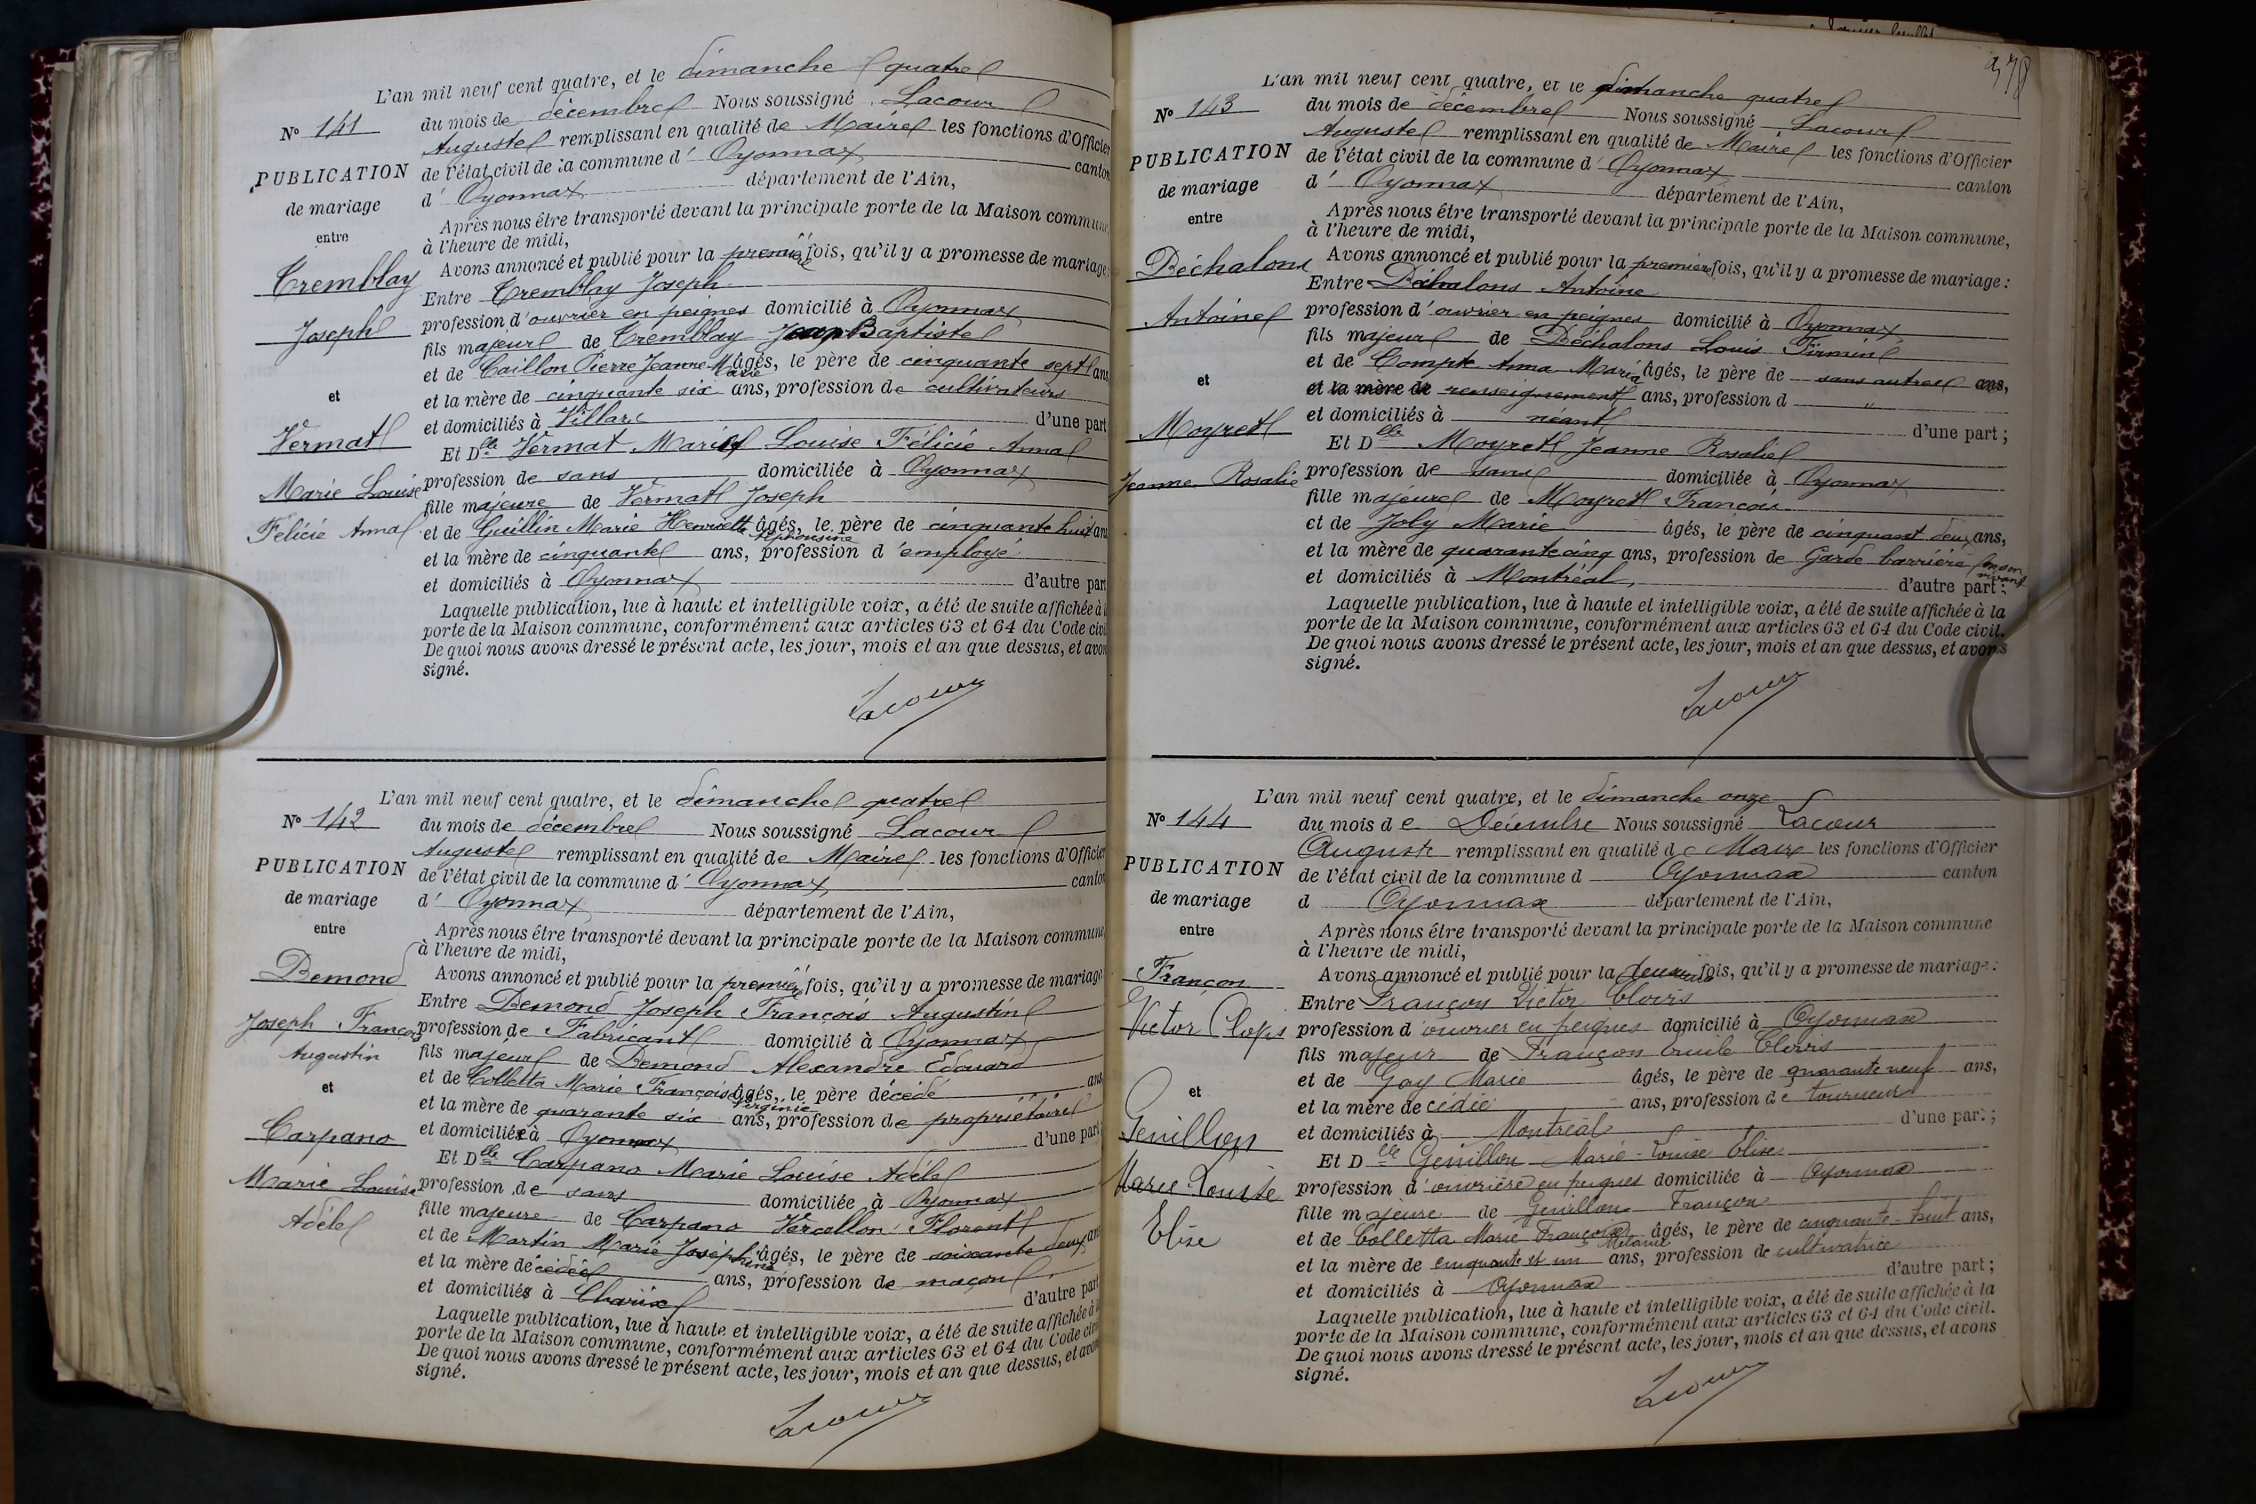 L'an mil neuf cent quatre, et le dimanche quatre
N° 141
du mois de décembre Nous soussigné Lacour
Auguste remplissant en qualité de Maire les fonctions d'Officier
PUBLICATION
de l'état civil de la commune d' Oyonnax canton
d' Oyonnax département de l'Ain,
de mariage
Après nous être transporté devant la principale porte de la Maison commune
entre
à l'heure de midi,
Avons annoncé et publié pour la première fois, qu'il y a promesse de mariage:
Tremblay
Entre Tremblay Joseph
profession d'ouvrier en peignes domicilié à Oyonnax
Joseph
fils majeur de Tremblay Jean Baptiste
et de Caillon Pierre Jeanne Marie âgés, le père de cinquante sept ans
et
et la mère de cinquante six ans, profession de cultivateurs
et domiciliés à Villars d'une part
Vermat
Et Dlle Vermat Marie Louise Félicie Anna
profession de sans domiciliée à Oyonnax
Marie Louise
fille majeure de Vermat Joseph
Félicie Anna
et de Guillin Marie Henriette Alphonsine âgés, le père de cinquante huit ans
et la mère de cinquante ans, profession d'employé
et domiciliés à Oyonnax d'autre part
Laquelle publication, lue à haute et intelligible voix, a été de suite affichée à l
porte de la Maison commune, conformément aux articles 63 et 64 du Code civil
De quoi nous avons dressé le présent acte, les jour, mois et an que dessus, et avons
signé.
Lacour
L'an mil neuf cent quatre, et le dimanche quatre
N° 142
du mois de décembre Nous soussigné Lacour
Auguste remplissant en qualité de Maire les fonctions d'Officier
PUBLICATION
de l'état civil de la commune d' Oyonnax canton
de mariage
d' Oyonnax département de l'Ain,
entre
Après nous être transporté devant la principale porte de la Maison commune
à l'heure de midi,
Bemond
Avons annoncé et publié pour la première fois, qu'il y a promesse de mariage
Entre Bemond Joseph François Augustin
Joseph François
profession de Fabricant domicilié à Oyonnax
Augustin
fils majeur de Bemond Alexandre Edouard
et de Colletta Marie Françoise Virginie âgés, le père décédé ans
et
et la mère de quarante six ans, profession de propriétaire
et domiciliée à Oyonnax d'une part
Carpano
Et Dlle Carpano Marie Louise Adèle
Marie Louise
profession de sans domiciliée à Oyonnax
Adèle
fille majeure de Carpano Vercellon Florent
et de Martin Marie Joséphine âgés, le père de soixante deux ans
et la mère décédée ans, profession de maçon
et domiciliés à Charix d'autre part
Laquelle publication, lue à haute et intelligible voix, a été de suite affichée à l
porte de la Maison commune, conformément aux articles 63 et 64 du Code civil
De quoi nous avons dressé le présent acte, les jour, mois et an que dessus, et avons
signé.
Lacour
278
L'an mil neuf cent quatre, et le dimanche quatre
N° 143
du mois de décembre Nous soussigné Lacour
Auguste remplissant en qualité de Maire les fonctions d'Officier
PUBLICATION
de l'état civil de la commune d' Oyonnax canton
de mariage
d' Oyonnax département de l'Ain,
entre
Après nous être transporté devant la principale porte de la Maison commune,
à l'heure de midi,
Déchalons
Avons annoncé et publié pour la première fois, qu'il y a promesse de mariage:
Entre Déchalons Antoine
Antoine
profession d'ouvrier en peignes domicilié à Oyonnax
fils majeur de Déchalons Louis Firmin
et de Compte Anna Maria âgés, le père de sans autres ans,
et
et la mère de renseignement ans, profession d "
et domiciliés à néant d'une part;
Moyret
Et Dlle Moyret Jeanne Rosalie
Jeanne Rosalie
profession de sans domiciliée à Oyonnax
fille majeure de Moyret François
et de Joly Marie âgés, le père de cinquant deux ans,
et la mère de quarante cinq ans, profession de Garde barrière
et domiciliés à Montréal d'autre part;
Laquelle publication, lue à haute et intelligible voix, a été de suite affichée à la
porte de la Maison commune, conformément aux articles 63 et 64 du Code civil.
De quoi nous avons dressé le présent acte, les jour, mois et an que dessus, et avons
signé.
Lacour
L'an mil neuf cent quatre, et le dimanche onze
N° 144
du mois de Décembre Nous soussigné Lacour
Auguste remplissant en qualité de Maire les fonctions d'Officier
PUBLICATION
de l'état civil de la commune d Oyonnax canton
de mariage
d Oyonnax département de l'Ain,
entre
Après nous être transporté devant la principale porte de la Maison commune
à l'heure de midi,
Françon
Avons annoncé et publié pour la deuxième fois, qu'il y a promesse de mariage:
Entre Françon Victor Clovis
Victor Clovis
profession d'ouvrier en peignes domicilié à Oyonnax
fils majeur de Françon Emile Clovis
et de Gay Marie âgés, le père de quarante neuf ans,
et
et la mère décédée ans, profession de tourneur
Genillon
et domiciliés à Montréal d'une part;
Et Dlle Genillon Marie-Louise Elise
Marie-Louise
profession d'ouvrière en peignes domiciliée à Oyonnax
Elise
fille majeure de Genillon Françon
et de Colletta Marie Françoise Mélanie âgés, le père de cinquante-huit ans,
et la mère de cinquante et un ans, profession de cultivatrice
et domiciliés à Oyonnax d'autre part;
Laquelle publication, lue à haute et intelligible voix, a été de suite affichée à la
porte de la Maison commune, conformément aux articles 63 et 64 du Code civil.
De quoi nous avons dressé le présent acte, les jour, mois et an que dessus, et avons
signé.
Lacour